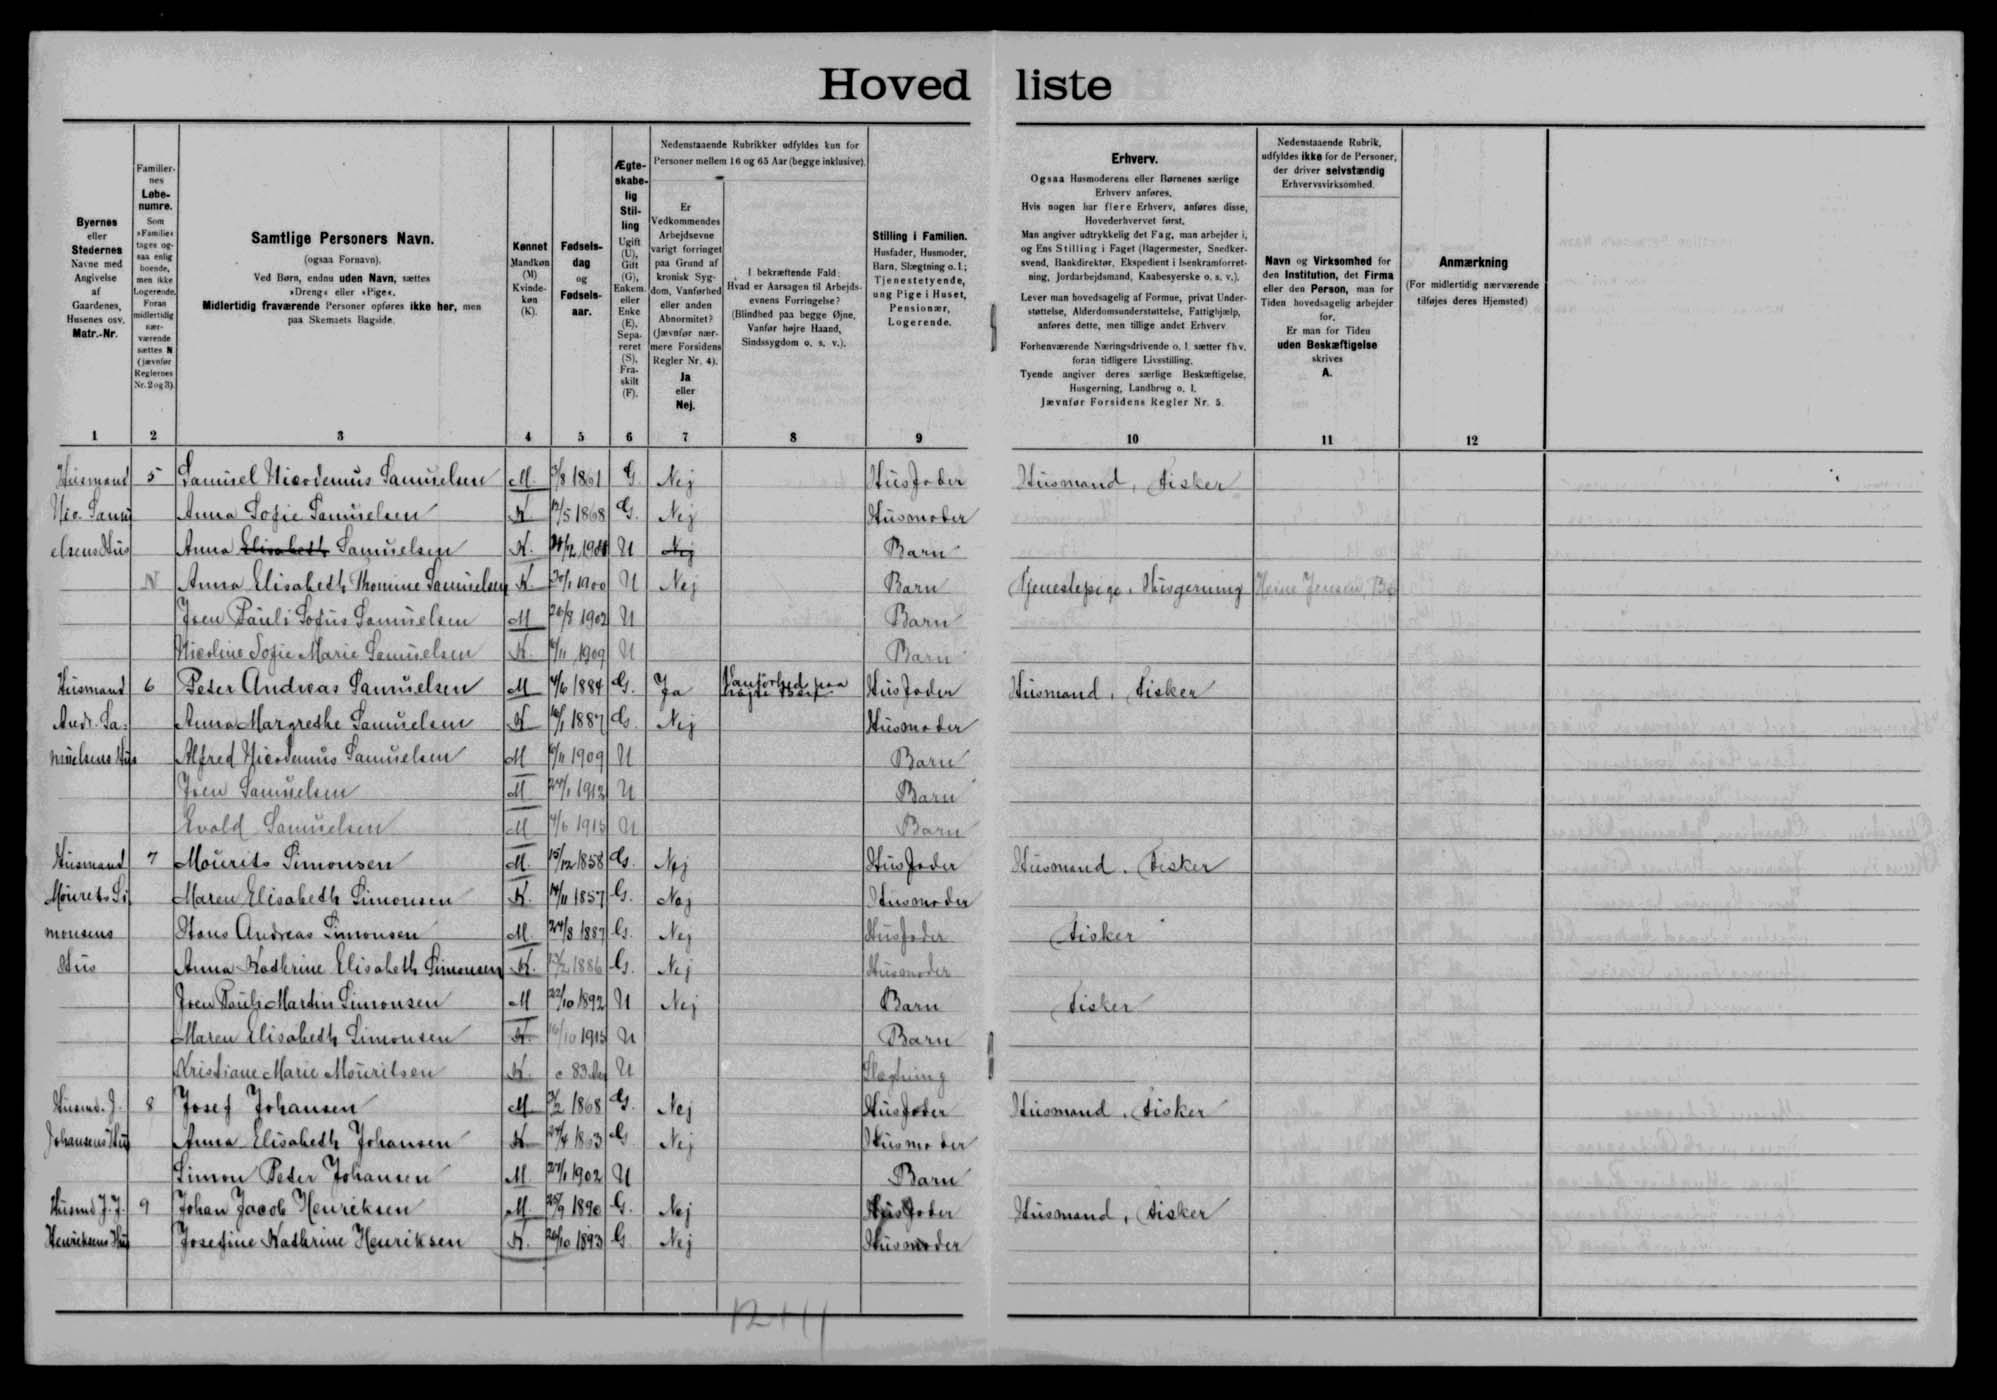 Hovedliste
Byernes eller Stedernes Navne med Angivelse af Gaardenes, Husenes osv. Matr.-Nr.
Familiernes Løbenumre. Som »Familie« tages ogsaa enlig boende, men ikke Logerende. Foran midlertidig nærværende sættes N (jævnfør Reglernes Nr. 2 og 3).
Samtlige Personers Navn. (ogsaa Fornavn). Ved Børn, endnu uden Navn, sættes »Dreng« eller »Pige«. Midlertidig fraværende Personer opføres ikke her, men paa Skemaets Bagside.
Kønnet Mandkøn (M) Kvindekøn (K).
Fødselsdag og Fødselsaar.
Ægteskabelig Stilling Ugift (U), Gift (G), Enkem. eller Enke (E), Separeret (S), Fraskilt (F).
Nedenstaaende Rubrikker udfyldes kun for Personer mellem 16 og 65 Aar (begge inklusive).
Er Vedkommendes Arbejdsevne varigt forringet paa Grund af kronisk Sygdom, Vanførhed eller anden Abnormitet? (Jævnfør nærmere Forsidens Regler Nr. 4). Ja eller Nej.
I bekræftende Fald: Hvad er Aarsagen til Arbejdsevnens Forringelse? (Blindhed paa begge Øjne, Vanfør højre Haand, Sindssygdom o. s. v.).
Stilling i Familien. Husfader, Husmoder, Barn, Slægtning o. l.; Tjenestetyende, ung Pige i Huset, Pensionær, Logerende.
Erhverv.
Ogsaa Husmoderens eller Børnenes særlige Erhverv anføres.
Hvis nogen har flere Erhverv, anføres disse, Hovederhvervet først.
Man angiver udtrykkelig det Fag, man arbejder i, og Ens Stilling i Faget (Bagermester, Snedkersvend, Bankdirektør, Ekspedient i Isenkramforretning, Jordarbejdsmand, Kaabesyerske o. s. v.).
Lever man hovedsagelig af Formue, privat Understøttelse, Alderdomsunderstøttelse, Fattighjælp, anføres dette, men tillige andet Erhverv
Forhenværende Næringsdrivende o. l. sætter fhv. foran tidligere Livsstilling.
Tyende angiver deres særlige Beskæftigelse, Husgerning, Landbrug o. l.
Jævnfør Forsidens Regler Nr. 5.
Nedenstaaende Rubrik, udfyldes ikke for de Personer, der driver selvstændig Erhvervsvirksomhed.
Navn og Virksomhed for den Institution, det Firma eller den Person, man for Tiden hovedsagelig arbejder for.
Er man for Tiden uden Beskæftigelse skrives A.
Anmærkning (For midlertidig nærværende tilføjes deres Hjemsted)
1 2 3 4 5 6 7 8 9 10 11 12
Husmand 5 Samuel Nicodemus Samuelsen M. 3/8 1861 G. Nej Husfader Husmand, Fisker
Nic. Samu Anna Sofie Samuelsen K 12/5 1868 G. Nej Husmoder
elsens Hus Anna Elisabeth Samuelsen K. U Nej Barn
N Anna Elisabeth Thomine Samuelsen K 20/1 1900 U Nej Barn Tjenestepige, Husgerning Heine Jensen,
Joen Pauli Sofus Samuelsen M 20/8 1902 U Barn
Nicoline Sofie Marie Samuelsen K. 6/11 1909 U Barn
Husmand 6 Peter Andreas Samuelsen M 4/6 1884 G. Ja Vanførhed paa højre Ben Husfader Husmand, Fisker
Andr. Sa- Anna Margrethe Samuelsen K 1887 G. Nej Husmoder
muelsens Hus Alfred Nicodemus Samuelsen M 6/11 1909 U Barn
Joen Samuelsen M 24/1 1912 U Barn
Evald Samuelsen M 4/6 1915 U Barn
Husmand 7 Mourits Simonsen M. 15/12 1858 G. Nej Husfader Husmand, Fisker
Mourits Si Maren Elisabeth Simonsen K. 14/11 1857 G. Nej Husmoder
monsens Hans Andreas Simonsen M. 24/8 1887 G. Nej Husfader Fisker
Hus Anna Kathrine Elisabeth Simonsen K. 13/2 1886 G. Nej Husmoder
Joen Pauli Martin Simonsen M 22/10 1892 U Nej Barn Fisker
Maren Elisabeth Simonsen K. 16/10 1915 U Barn
Kristiane Marie Mouritsen K. c 83 U Slægtning
Husmd. J. 8 Josef Johansen M 3/2 1868 G. Nej Husfader Husmand, Fisker
Johansens Hus Anna Elisabeth Johansen K 24/4 1863 G Nej Husmoder
Simon Peter Johansen M. 27/1 1902 U Barn
Husmd J. J. 9 Johan Jacob Henriksen M. 25/9 1890 G. Nej Husfader Husmand, Fisker
Henriksens Hus Josefine Kathrine Henriksen K. 26/10 1893 G. Nej Husmoder
12+11